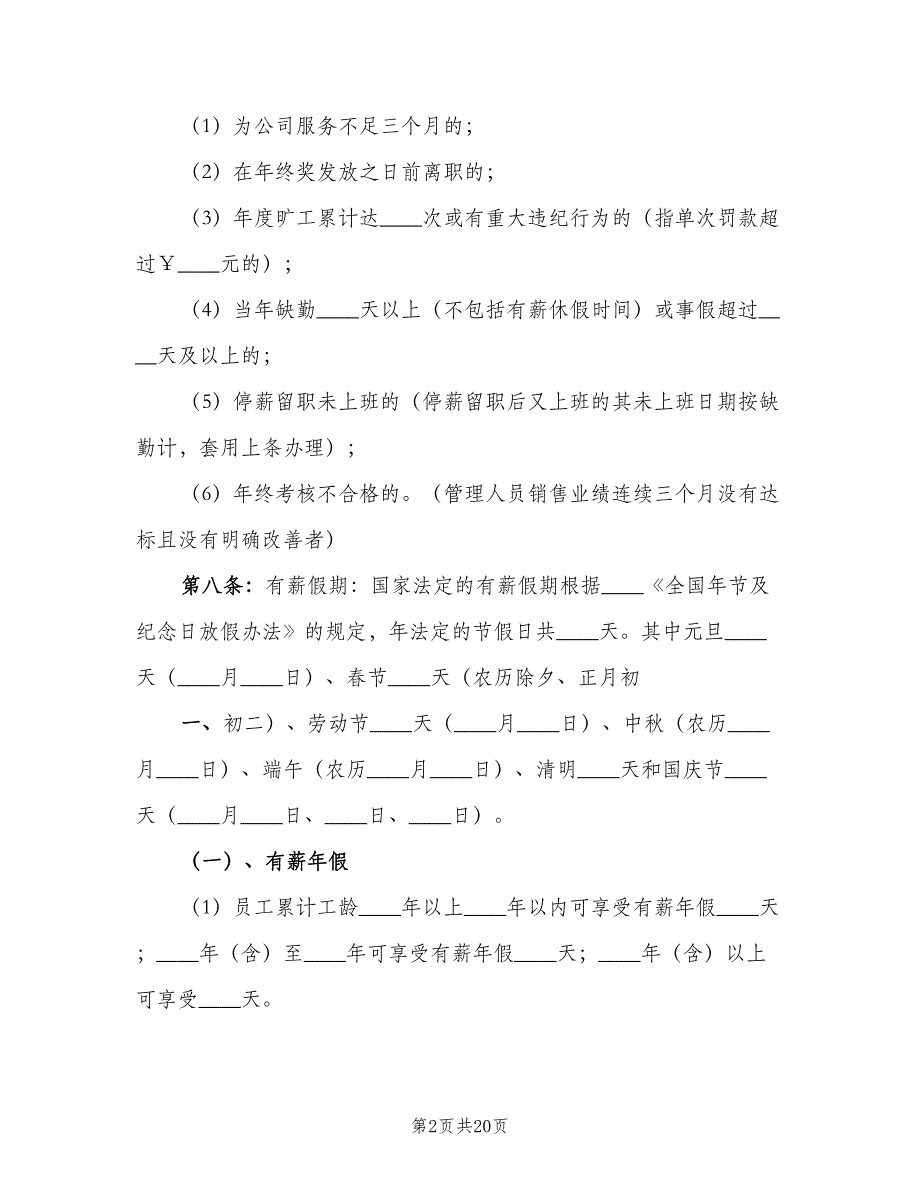 （1）为公司服务不足三个月的；
（2）在年终奖发放之日前离职的；
（3）年度旷工累计达____次或有重大违纪行为的（指单次罚款超
过￥____元的）；
（4）当年缺勤____天以上（不包括有薪休假时间）或事假超过__
__天及以上的；
（5）停薪留职未上班的（停薪留职后又上班的其未上班日期按缺
勤计，套用上条办理）；
（6）年终考核不合格的。（管理人员销售业绩连续三个月没有达
标且没有明确改善者）
第八条：有薪假期：国家法定的有薪假期根据____《全国年节及
纪念日放假办法》的规定，年法定的节假日共____天。其中元旦____
天（____月____日）、春节____天（农历除夕、正月初
一、初二）、劳动节____天（____月____日）、中秋（农历____
月____日）、端午（农历____月____日）、清明____天和国庆节____
天（____月____日、____日、____日）。
（一）、有薪年假
（1）员工累计工龄____年以上____年以内可享受有薪年假____天
；____年（含）至____年可享受有薪年假____天；____年（含）以上
可享受____天。
第2页共20页